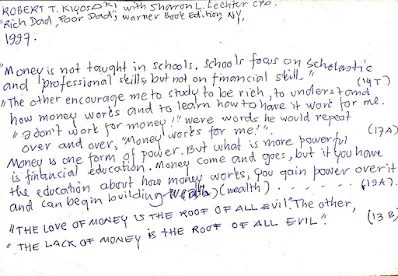 ROBERT T. KIYOSAKI with Sharon L. Lechter CPA.
"Rich Dad, Poor Dad", Warner Book Edition NY,
1997.
"Money is not taught in schools, schools focus on scholastic
and professional skills but not on financial skill." (14T)
"The other encourage me to study to be rich, to understand
how money works and to learn how to have it work for me.
"I don't work for money!" were words he would repeat
over and over, "Money works for me!". (17A)
Money is one form of power. But what is more powerful
is financial education. Money come and goes, but if you have
the education about how money works, you gain power over it
and can begin building (wealth) . . . . . . . . (19A).
"THE LOVE OF MONEY IS THE ROOF OF ALL EVIL". The other,
"THE LACK OF MONEY is THE ROOF OF ALL EVIL." (13B)